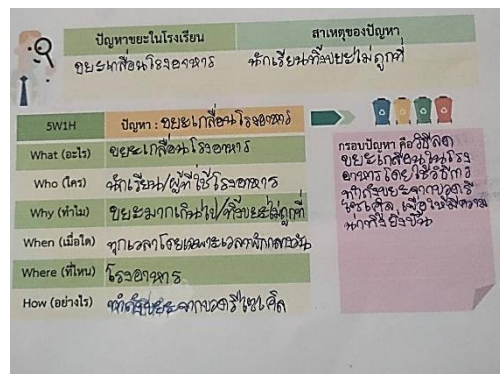 ปัญหาขยะในโรงเรียน
สาเหตุของปัญหา
ขยะเกลื่อนโรงอาหาร
นักเรียนทิ้งขยะไม่ถูกที่
5W1H
ปัญหา : ขยะเกลื่อนโรงอาหาร
What (อะไร)
ขยะเกลื่อนโรงอาหาร
Who (ใคร)
นักเรียน/ผู้ที่ใช้โรงอาหาร
Why (ทำไม)
ขยะมากเกินไป/ทิ้งขยะไม่ถูกที่
When (เมื่อใด)
ทุกเวลาโดยเฉพาะเวลาพักกลางวัน
Where (ที่ไหน)
โรงอาหาร
How (อย่างไร)
ทำถังขยะจากขวดรีไซเคิล
กรอบปัญหา คือวิธีลด
ขยะเกลื่อนในโรง
อาหารโดยใช้วิธีการ
ทำถังขยะจากขวดรี
ไซเคิล เพื่อให้มีความ
น่าทิ้งยิ่งขึ้น